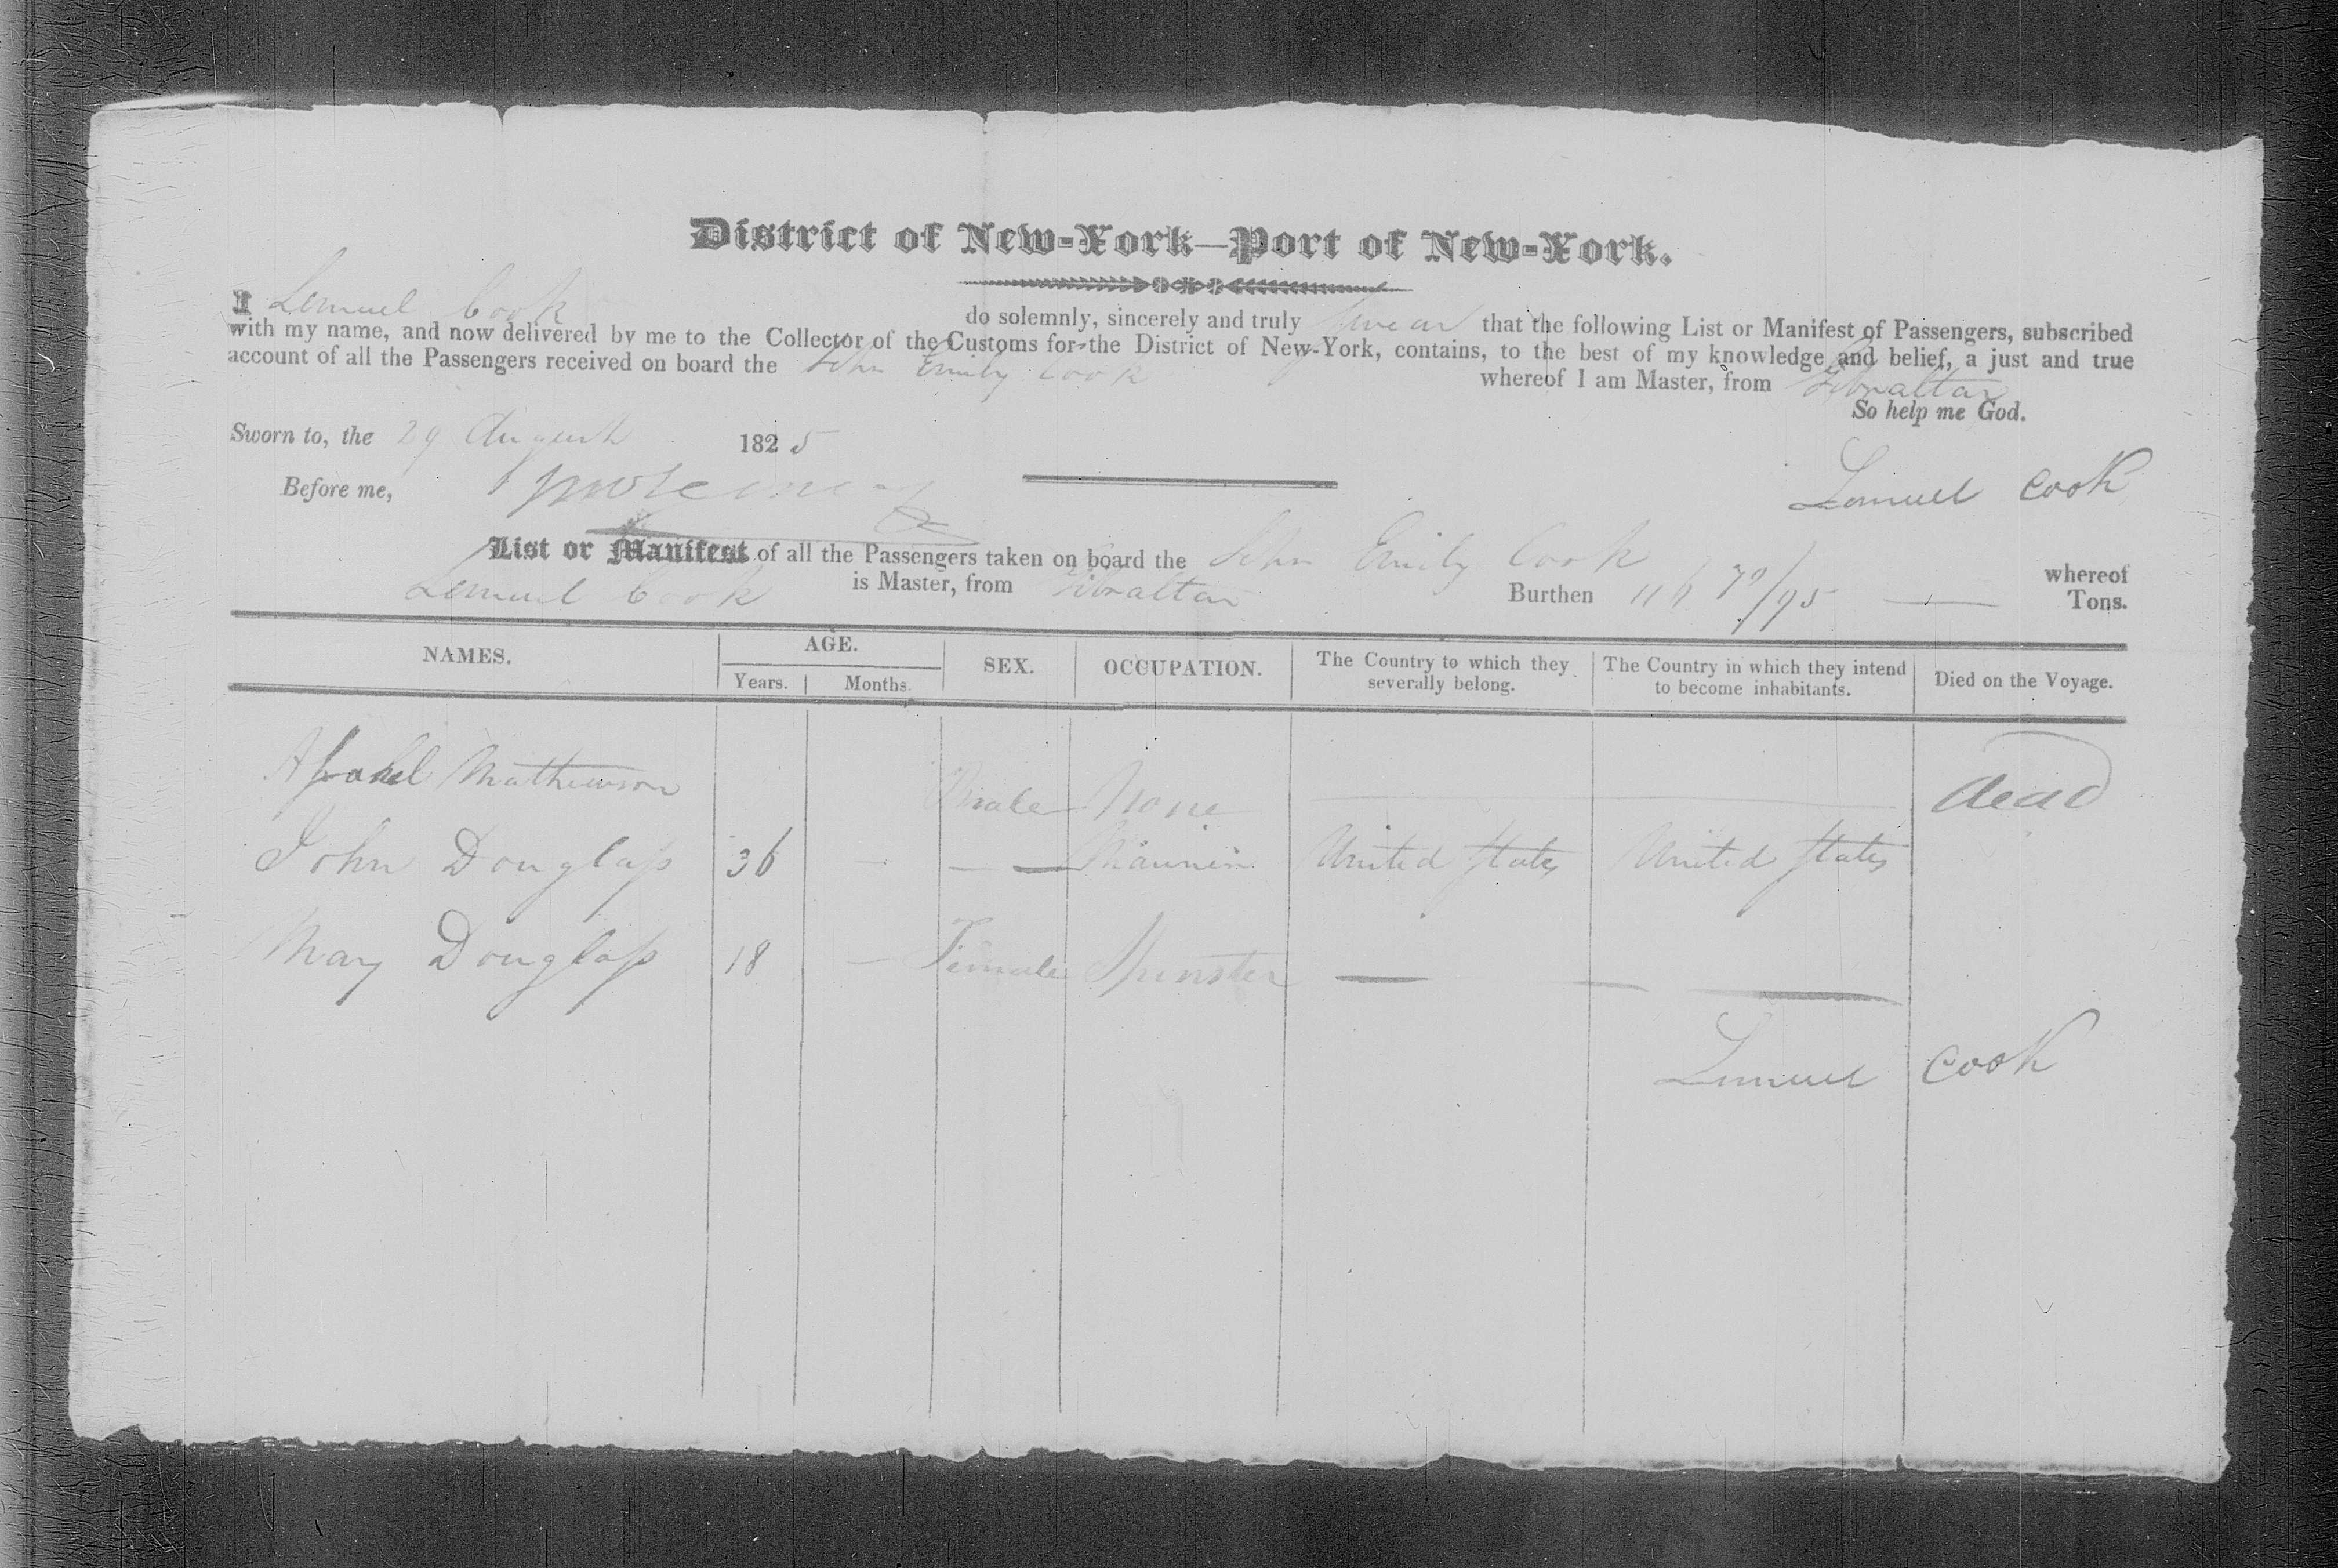 District of New-York—Port of New-York.
I Lemuel Cook do solemnly, sincerely and truly swear that the following List or Manifest of Passengers, subscribed
with my name, and now delivered by me to the Collector of the Customs for the District of New-York, contains, to the best of my knowledge and belief, a just and true
account of all the Passengers received on board the Schr Emily Cook whereof I am Master, from Gibraltar
So help me God.
Sworn to, the 29 August 1825
Before me,
Lemuel Cook
List or Manifest of all the Passengers taken on board the Schr Emily Cook whereof
Lemuel Cook is Master, from Gibraltar Burthen 116 70/95 Tons.
NAMES. AGE. SEX. OCCUPATION. The Country to which they severally belong. The Country in which they intend to become inhabitants. Died on the Voyage.
Years. Months.
Mathewson Male None dead
John Douglass 36 — — United States United States
Mary Douglass 18 — Female Spinster — —
Lemuel Cook